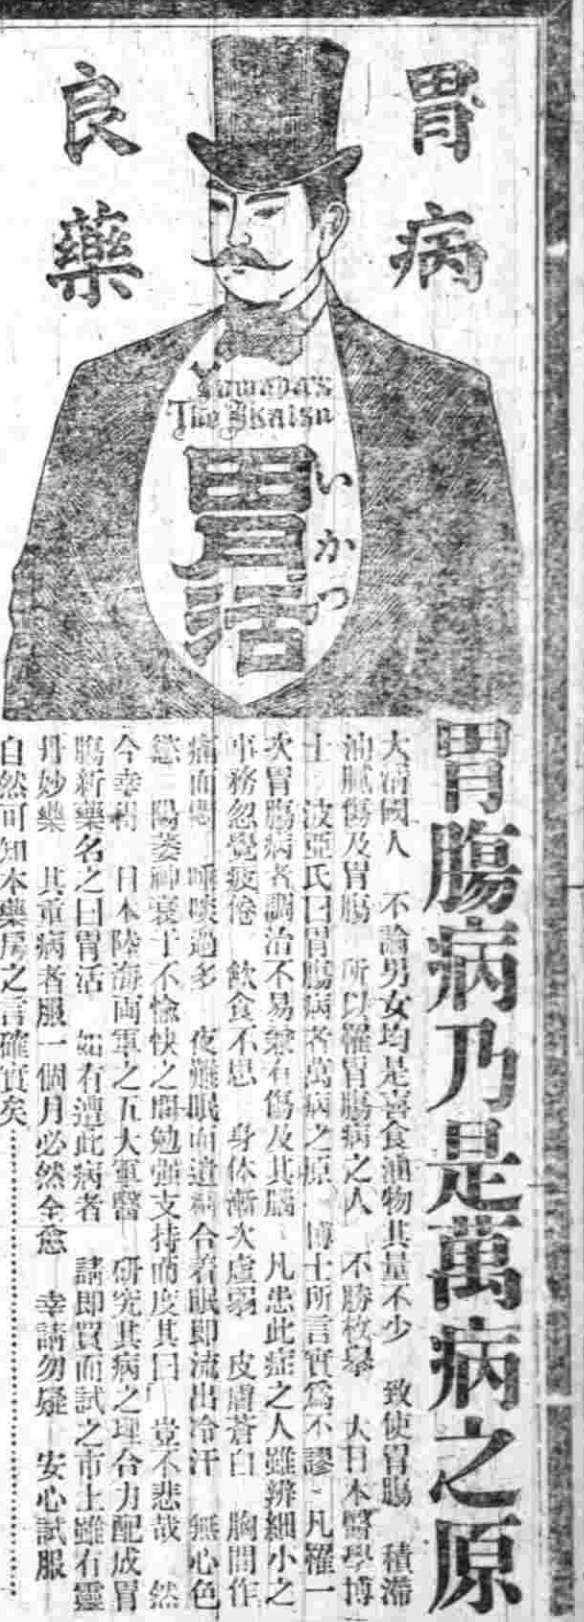 胃病
良藥
Yamada's
The Ikatsu
胃活
いかつ
胃腸病乃是萬病之原
大清國人　不論男女均是喜食油物其量不少　致使胃腸　積滯
油膩傷及胃腸　所以罹胃腸病之人　不勝枚擧　大日本醫學博
士　波亞氏曰胃腸病者萬病之原　博士所言實爲不謬、凡罹一
次胃腸病者調治不易兼有傷及其腦　凡患此症之人雖辨細小之
事務忽覺疲倦　飲食不思　身体漸次虛弱　皮膚蒼白　胸間作
痛而　過多　夜無眠而遺　合着眠即流出冷汗　無心色
慾　陽萎神衰于不愉快之間勉强支持而度其日　豈不悲哉　然
今幸　日本陸海両軍之五大軍醫　研究其病之理合力配成胃
腸新藥名之曰胃活　如有遭此病者　請即買而試之市上雖有靈
丹妙藥　其重病者服一個月必然全愈　幸請勿疑　安心試服
自然可知本藥房之言確實矣